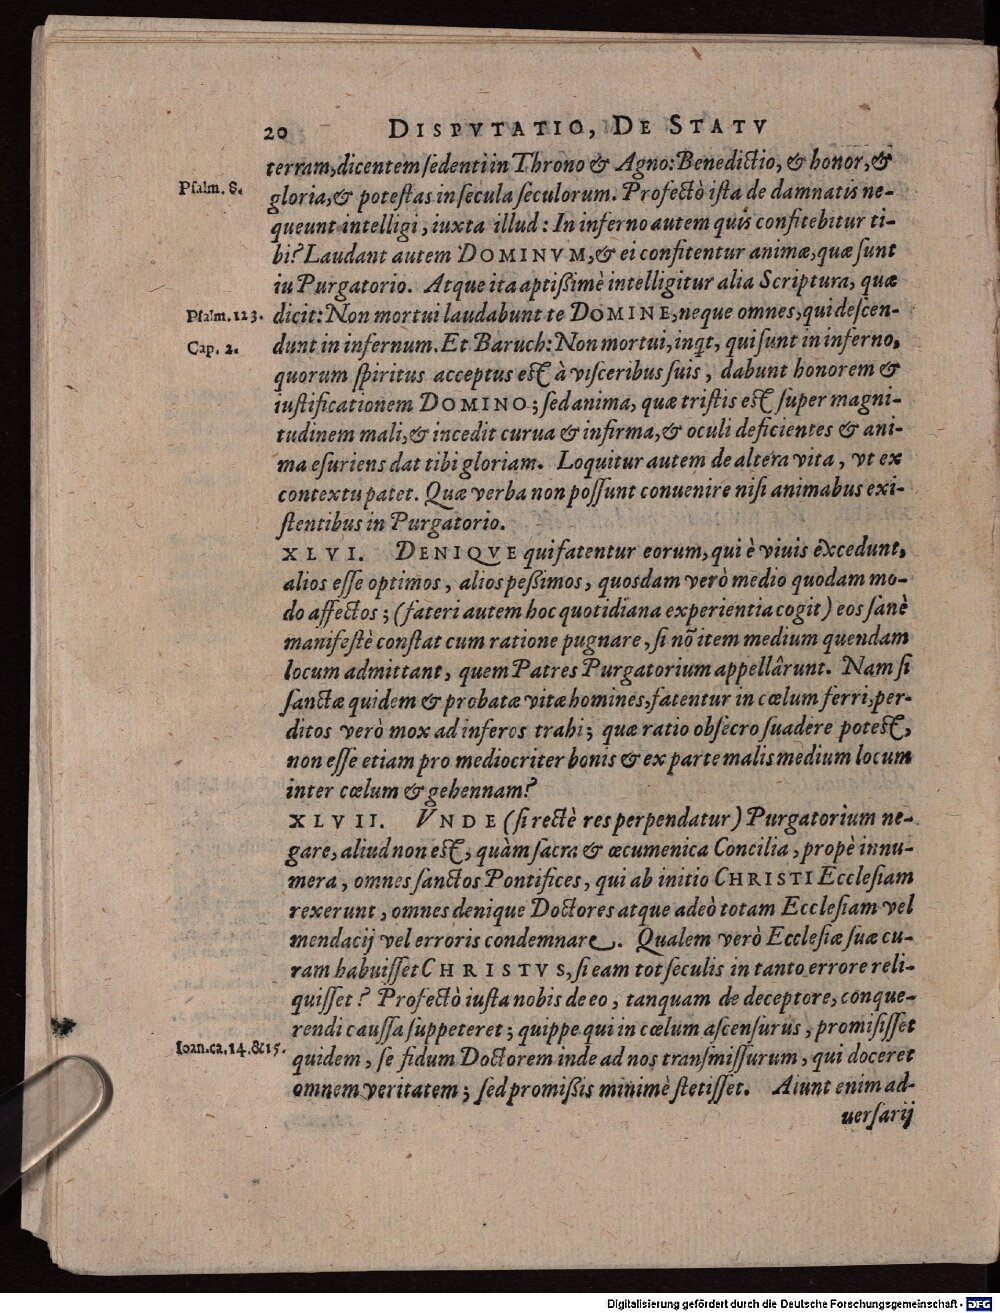 20 DISPVTATIO, DE STATV
terram, dicentem sedenti in Throno & Agno: Benedictio, & honor, &
Psalm. 8.
gloria, & potestas in secula seculorum. Profectò ista de damnatis ne-
queunt intelligi, iuxta illud: In inferno autem quis confitebitur ti-
bi? Laudant autem DOMINVM, & ei confitentur animæ, quæ sunt
iu Purgatorio. Atque ita aptißimè intelligitur alia Scriptura, quæ
Psalm. 123.
dicit: Non mortui laudabunt te DOMINE, neque omnes, qui descen-
Cap. 2.
dunt in infernum. Et Baruch: Non mortui, inqt, qui sunt in inferno,
quorum spiritus acceptus est à visceribus suis, dabunt honorem &
iustificationem DOMINO; sed anima, quæ tristis est super magni-
tudinem mali, & incedit curua & infirma, & oculi deficientes & ani-
ma esuriens dat tibi gloriam. Loquitur autem de altera vita, vt ex
contextu patet. Quæ verba non possunt conuenire nisi animabus exi-
stentibus in Purgatorio.
XLVI. DENIQVE qui fatentur eorum, qui è viuis excedunt,
alios esse optimos, alios peßimos, quosdam verò medio quodam mo-
do affectos; (fateri autem hoc quotidiana experientia cogit) eos sanè
manifestè constat cum ratione pugnare, si nõ item medium quendam
locum admittant, quem Patres Purgatorium appellârunt. Nam si
sanctæ quidem & probatæ vitæ homines, fatentur in cœlum ferri, per-
ditos verò mox ad inferos trahi; quæ ratio obsecro suadere potest,
non esse etiam pro mediocriter bonis & ex parte malis medium locum
inter cœlum & gehennam?
XLVII. VNDE (si rectè res perpendatur) Purgatorium ne-
gare, aliud non est, quàm sacra & œcumenica Concilia, propè innu-
mera, omnes sanctos Pontifices, qui ab initio CHRISTI Ecclesiam
rexerunt, omnes denique Doctores atque adeò totam Ecclesiam vel
mendacij vel erroris condemnare. Qualem verò Ecclesiæ suæ cu-
ram habuisset CHRISTVS, si eam tot seculis in tanto errore reli-
quisset? Profectò iusta nobis de eo, tanquam de deceptore, conque-
rendi caussa suppeteret; quippe qui in cœlum ascensurus, promisisset
Ioan. ca. 14. & 15.
quidem, se fidum Doctorem inde ad nos transmissurum, qui doceret
omnem veritatem; sed promißis minimè stetisset. Aiunt enim ad-
uersarij
Digitalisierung gefördert durch die Deutsche Forschungsgemeinschaft - DFG